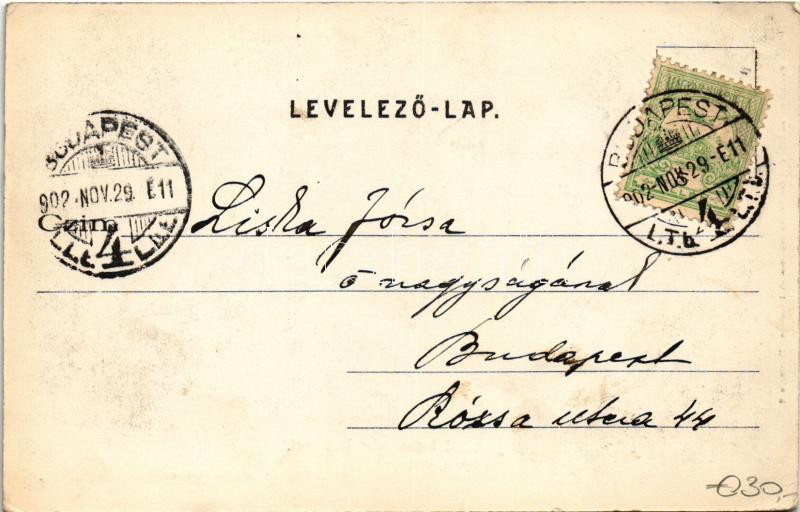 LEVELEZŐ-LAP.
BUDAPEST
902·NOV.29. É11
4
BUDAPEST
902·NOV.29·É11
4
L.T.b.
Czim
Liska Józsa
ő nagyságának
Budapest
Rózsa utcza 44
€30,-